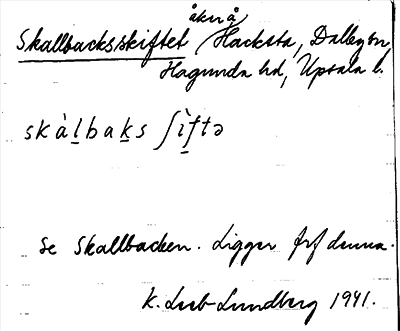 åkrå
Skallbacksskiftet Hacksta, Dalbybyn,
Hagunda hd, Upsala l.
skàl̠bak̠s ʃì̠ftə
Se Skallbacken. Ligger frf denna.
K. Leeb-Lundberg 1941.